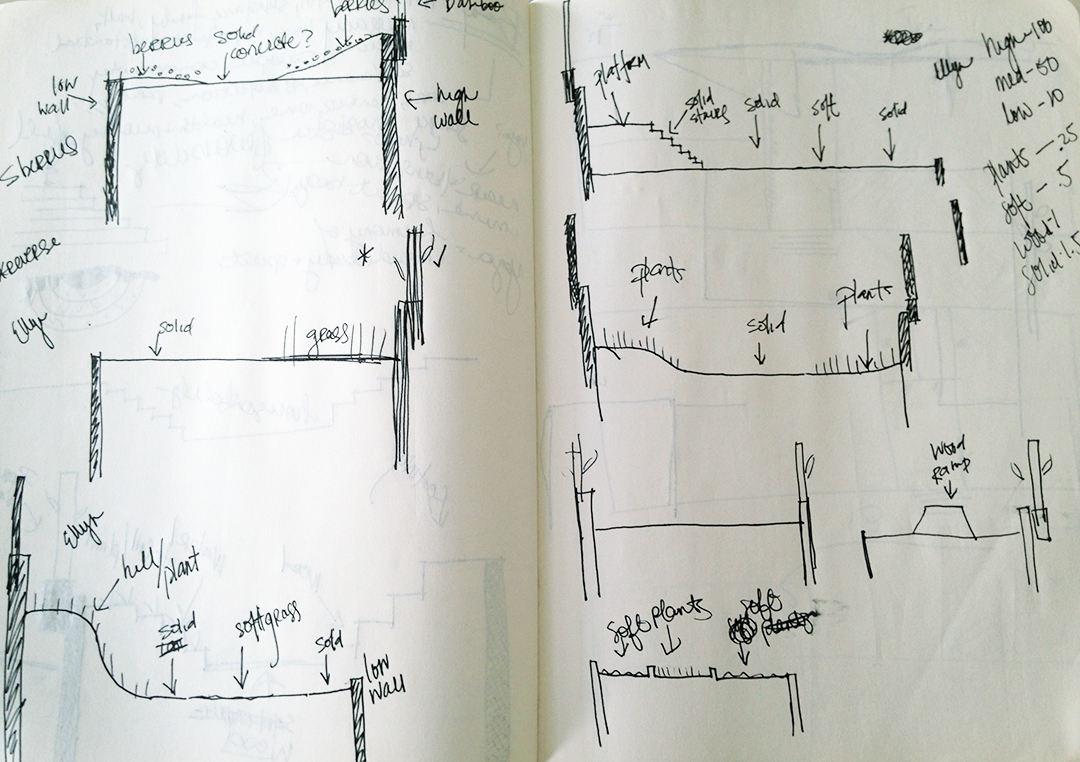 berries
solid
concrete?
berries
Bamboo
low
wall
high
wall
5 berries
reverse
solid
grass
Ellyn
Ellyn
hill/
plant
solid
soft grass
solid
low
wall
platform
solid
stairs
solid
soft
solid
Ellyn
high-100
med-50
low-10
plants - .25
soft - .5
wood-1
solid:1.5
plants
solid
plants
wood
ramp
soft
plants
soft